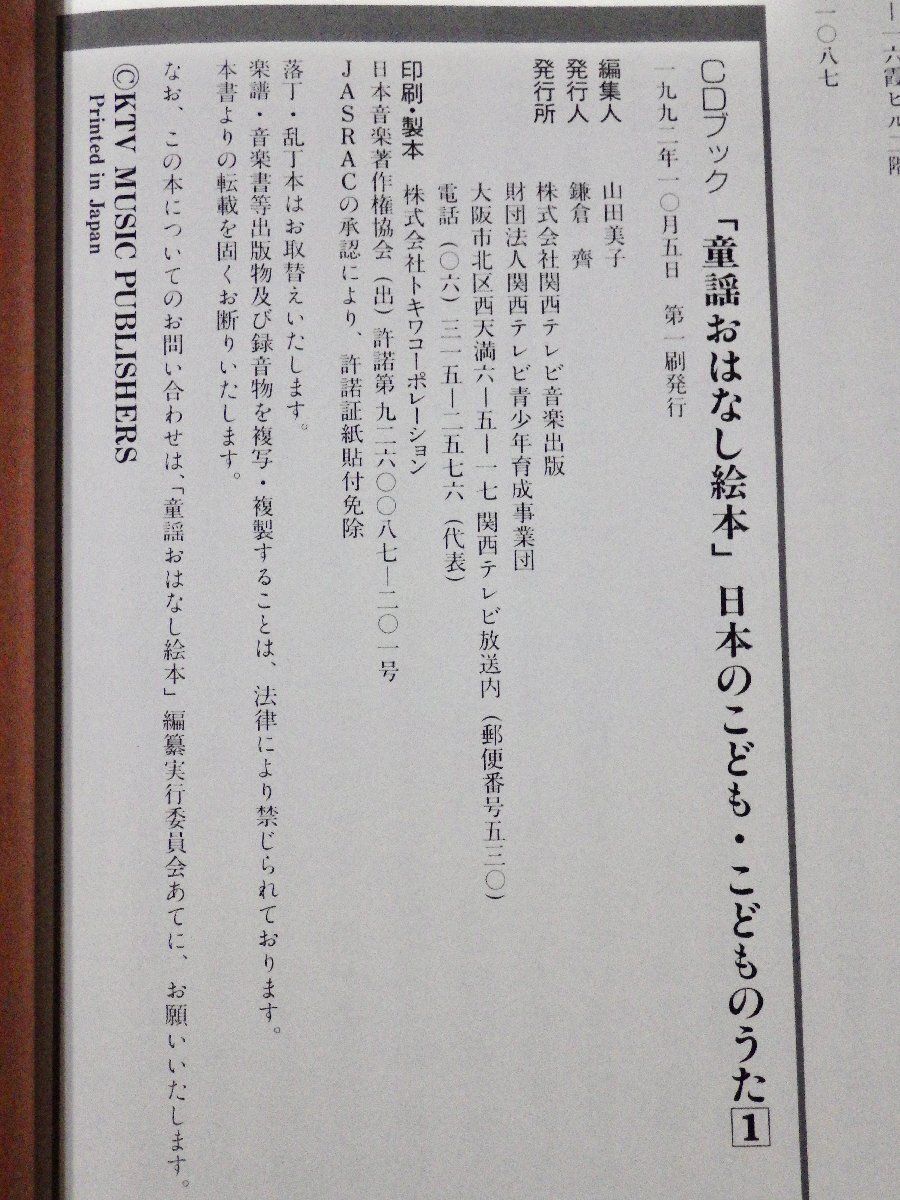 一六霞ビル二階
一〇八七
CDブック 「童謡おはなし絵本」 日本のこども・こどものうた 1
一九九二年一〇月五日 第一刷発行
編集人 山田美子
発行人 鎌倉 齊
発行所 株式会社関西テレビ音楽出版
財団法人関西テレビ青少年育成事業団
大阪市北区西天満六―五―一七 関西テレビ放送内 (郵便番号五三〇)
電話 (〇六) 三一五―二五七六 (代表)
印刷・製本 株式会社トキワコーポレーション
日本音楽著作権協会 (出) 許諾第九二六〇〇八七―二〇一号
JASRACの承認により、許諾証紙貼付免除
落丁・乱丁本はお取替えいたします。
楽譜・音楽書等出版物及び録音物を複写・複製することは、法律により禁じられております。
本書よりの転載を固くお断りいたします。
なお、この本についてのお問い合わせは、「童謡おはなし絵本」編纂実行委員会あてに、お願いいたします。
©KTV MUSIC PUBLISHERS
Printed in Japan